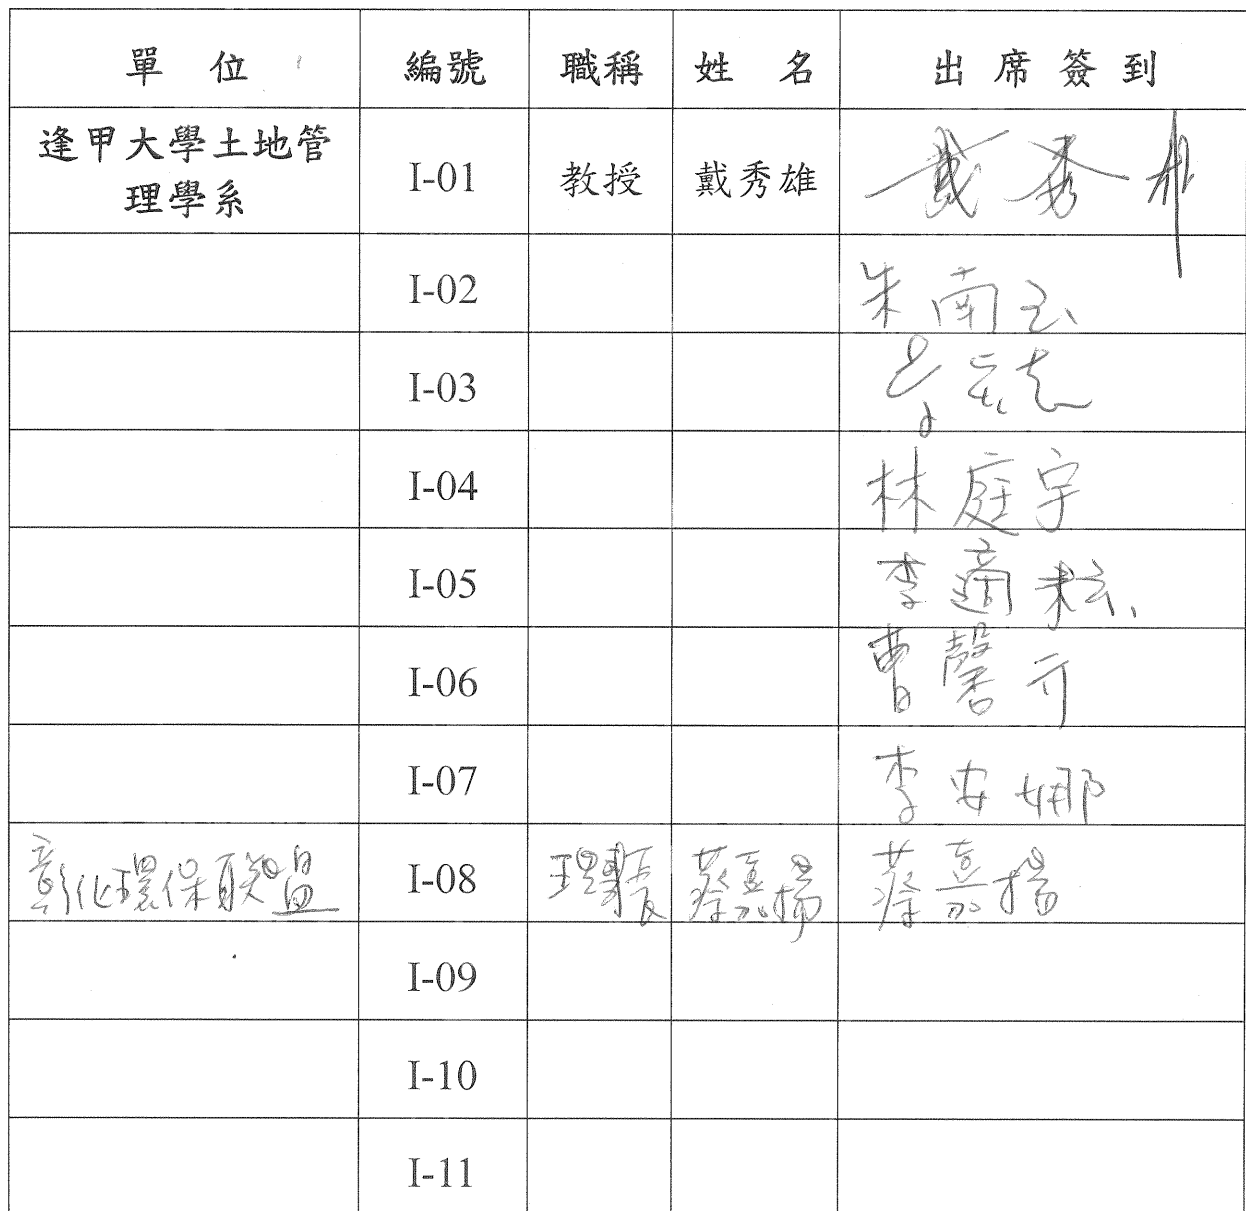 單 位 編號 職稱 姓 名 出 席 簽 到
逢甲大學土地管
理學系 I-01 教授 戴秀雄 戴秀雄
I-02 朱南玉
I-03
I-04 林庭宇
I-05 李適耘
I-06 曹馨亓
I-07 李安娜
彰化環保聯盟 I-08 理事長 蔡嘉揚 蔡嘉揚
I-09
I-10
I-11